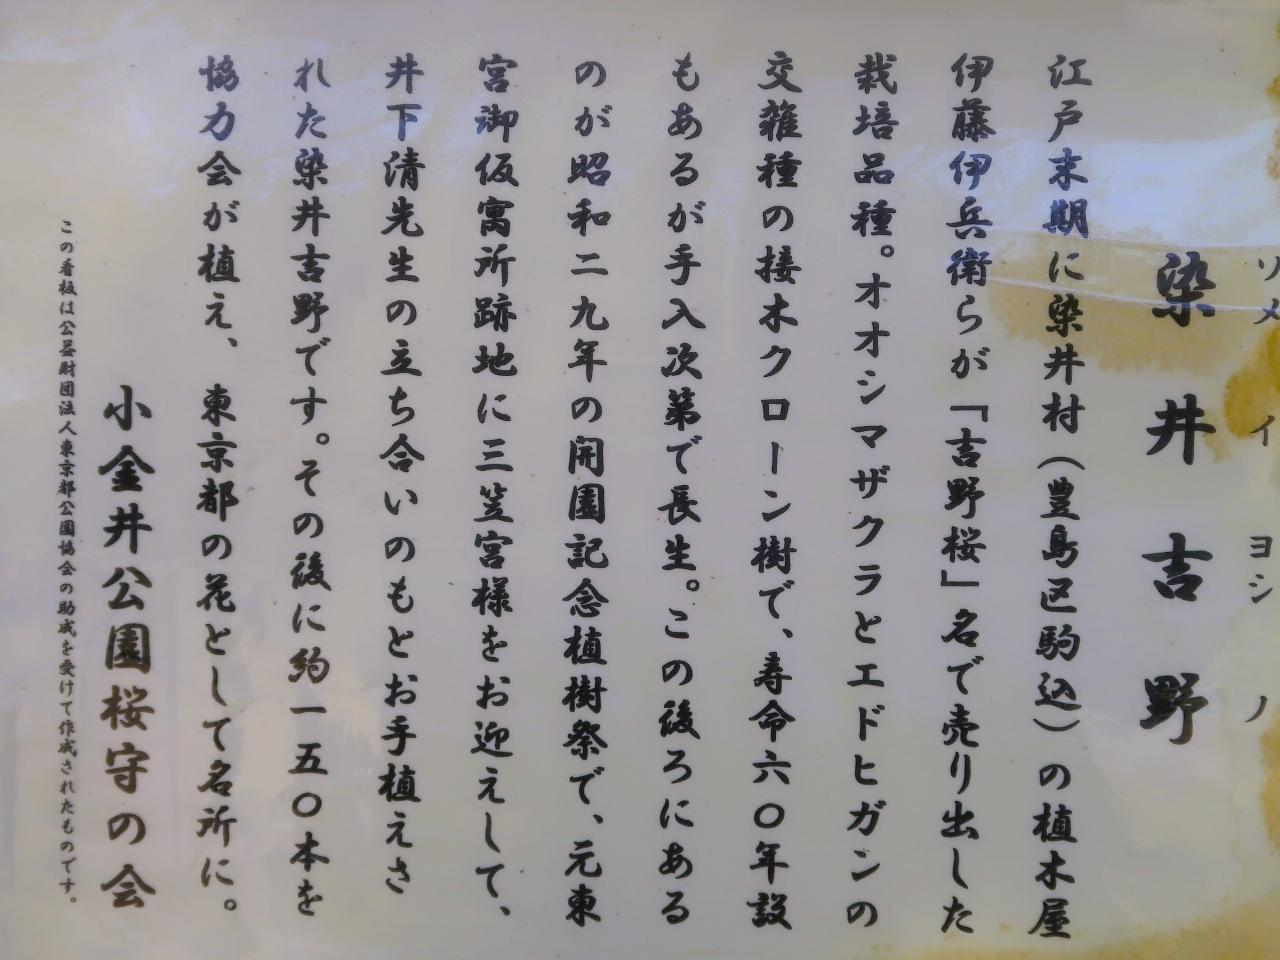 ソメイヨシノ
染井吉野
江戸末期に染井村（豊島区駒込）の植木屋
伊藤伊兵衛らが「吉野桜」名で売り出した
栽培品種。オオシマザクラとエドヒガンの
交雑種の接木クローン樹で、寿命六〇年説
もあるが手入次第で長生。この後ろにある
のが昭和二九年の開園記念植樹祭で、元東
宮御仮寓所跡地に三笠宮様をお迎えして、
井下清先生の立ち合いのもとお手植えさ
れた染井吉野です。その後に約一五〇本を
協力会が植え、東京都の花として名所に。
小金井公園桜守の会
この看板は公益財団法人東京都公園協会の助成を受けて作成されたものです。